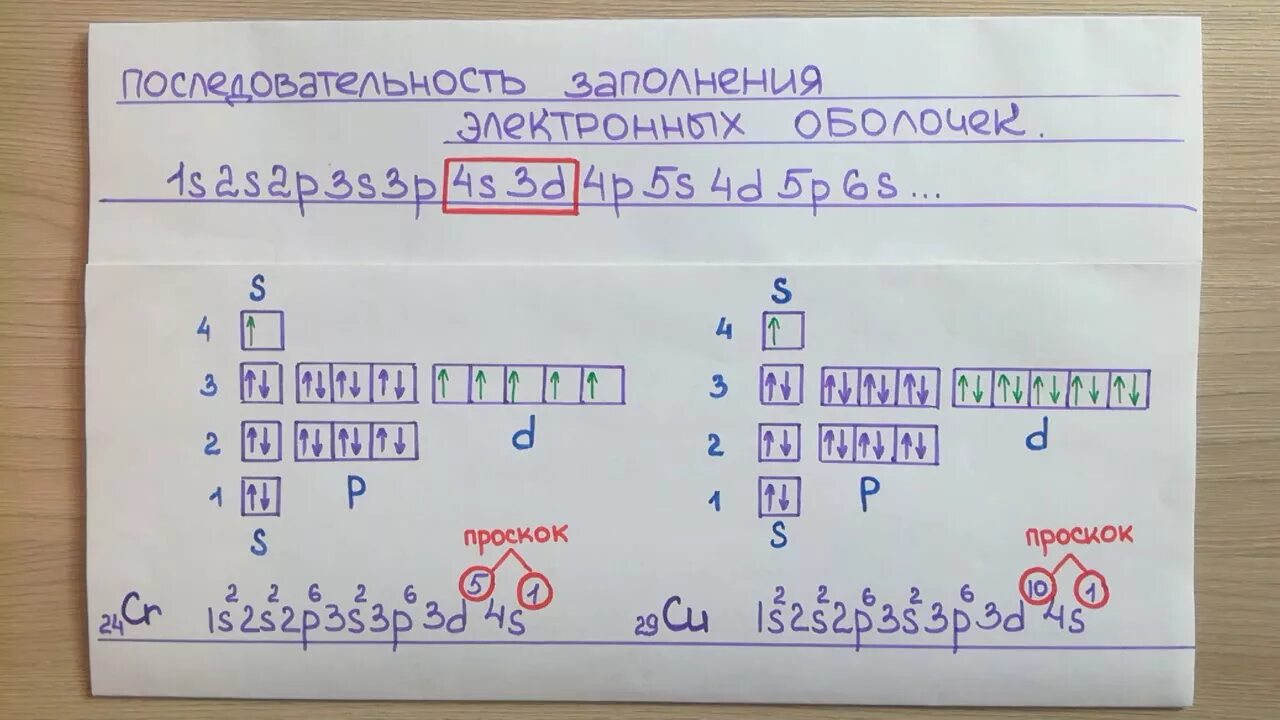 последовательность заполнения
электронных оболочек.
1s 2s 2p 3s 3p 4s 3d 4p 5s 4d 5p 6s ...
S S
4 ↑ 4 ↑
3 ↑↓ ↑↓ ↑↓ ↑↓ ↑ ↑ ↑ ↑ ↑ 3 ↑↓ ↑↓ ↑↓ ↑↓ ↑↓ ↑↓ ↑↓ ↑↓ ↑↓
2 ↑↓ ↑↓ ↑↓ ↑↓ d 2 ↑↓ ↑↓ ↑↓ ↑↓ d
1 ↑↓ P 1 ↑↓ P
S S
проскок проскок
₂₄Cr 1s²2s²2p⁶3s²3p⁶3d⁵4s¹ ₂₉Cu 1s²2s²2p⁶3s²3p⁶3d¹⁰4s¹